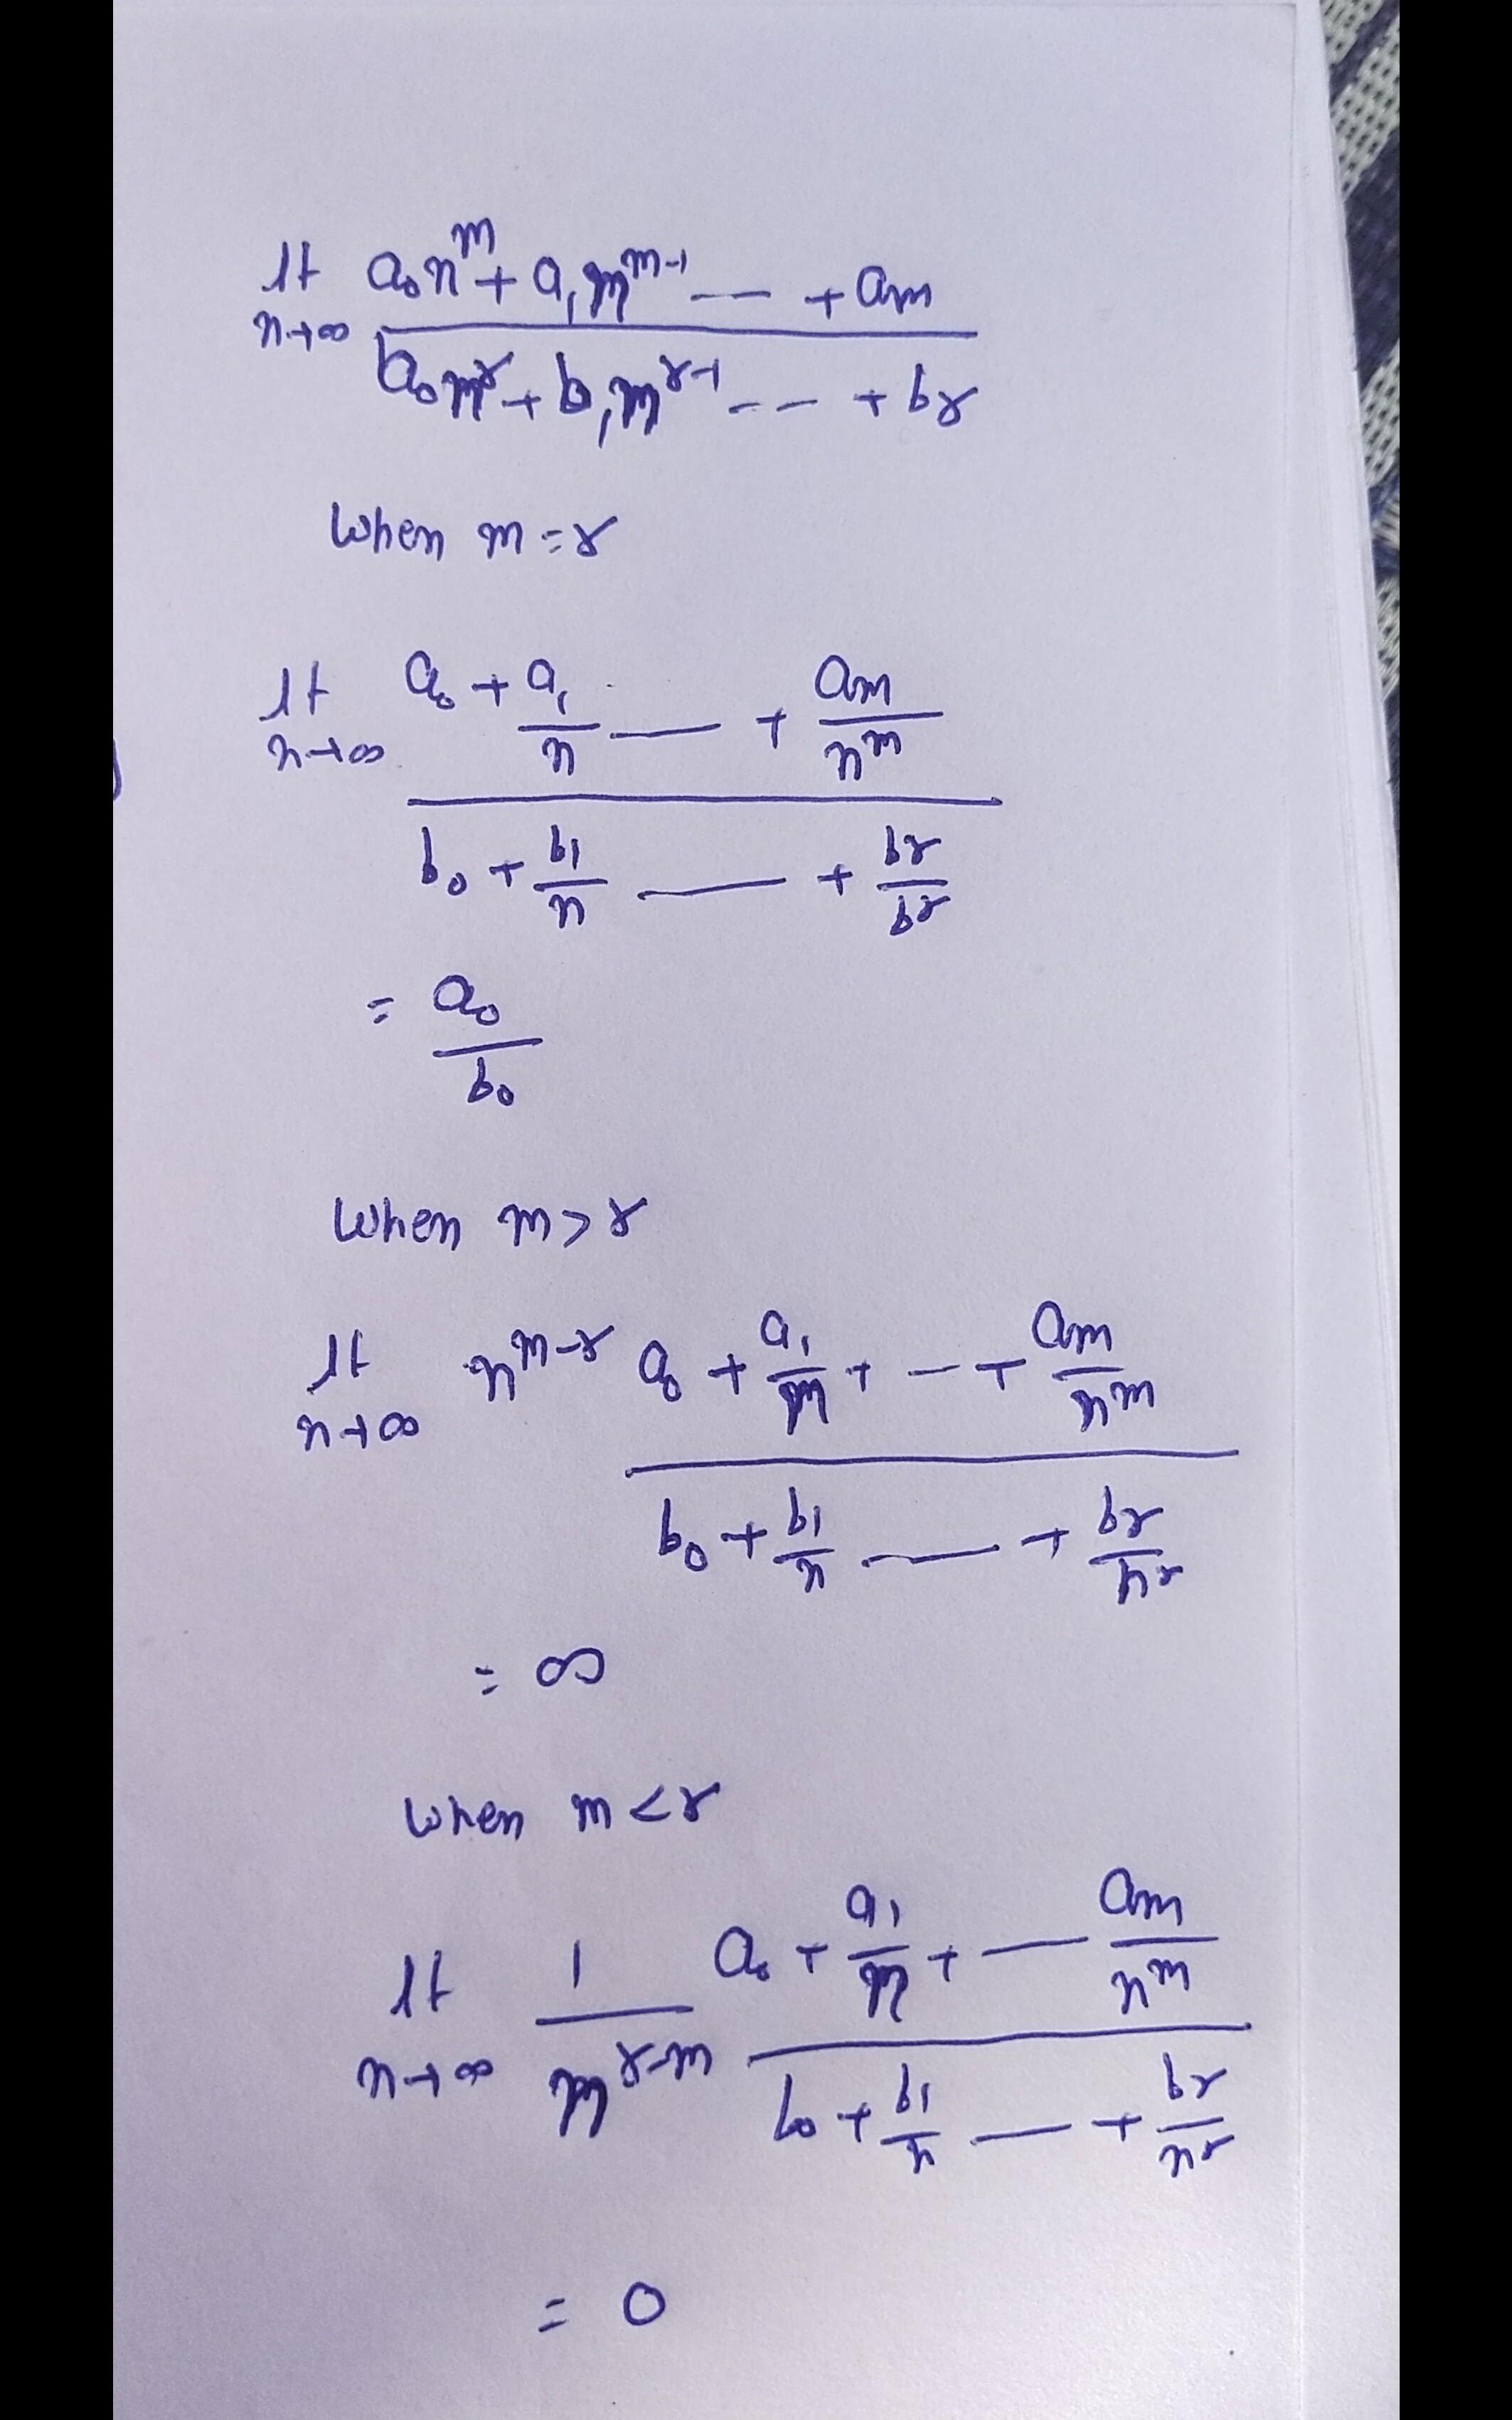 lt n→∞ (a₀n^m + a₁n^(m-1) --- + am) / (b₀n^r + b₁n^(r-1) --- + br)
When m = r
lt n→∞ (a₀ + a₁/n --- + am/n^m) / (b₀ + b₁/n --- + br/br)
= a₀/b₀
When m > r
lt n→∞ n^(m-r) (a₀ + a₁/n + -- + am/n^m) / (b₀ + b₁/n --- + br/n^r)
= ∞
When m < r
lt n→∞ 1/n^(r-m) (a₀ + a₁/n + --- am/n^m) / (b₀ + b₁/n --- + br/n^r)
= 0